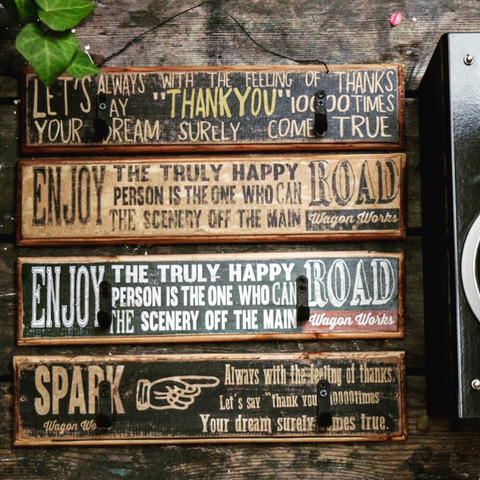 LET'S ALWAYS WITH THE FEELING OF THANKS.
SAY "THANKYOU" 10000TIMES
YOUR DREAM SURELY COME TRUE
ENJOY THE TRULY HAPPY ROAD
PERSON IS THE ONE WHO CAN
THE SCENERY OFF THE MAIN Wagon Works
ENJOY THE TRULY HAPPY ROAD
PERSON IS THE ONE WHO CAN
THE SCENERY OFF THE MAIN Wagon Works
SPARK Always with the feeling of thanks.
Let's say "thank you 100000times
Wagon Wo Your dream surely comes true.